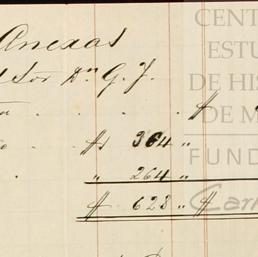 Anexas
Sor Dn G. J.
$
$ 364 "
" 264 "
$ 628 " $
CENT
ESTU
DE HIS
DE M
FUND
Car